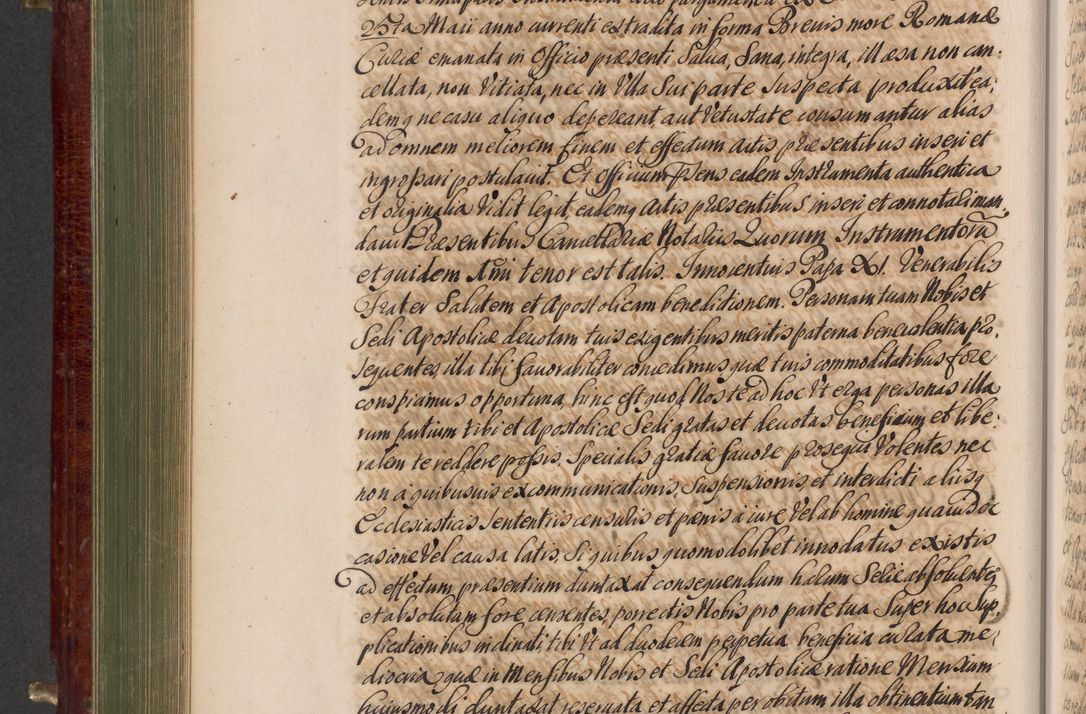 25ta Maii anno currenti extradita in forma Brevis more Romanæ
Curiæ emanata in Officio præsenti Salva, Sana, integra, illæsa non can
cellata, non Vitiata, nec in Ulla Sui parte Suspecta produxit ea,
demq ne casu aliquo depereant, aut Vetustate consumantur alias
ad omnem meliorem finem et effectum Actis præsentibus inseri et
ingrossari postulavit. Et Officium Præsens eadem Instrumenta authentica
et originalia Vidit legit, eademq Actis præsentibus inseri et connotari man,
davit Præsentibus Cancellariæ Notariis Quorum Instrumentorū
et quidem 1mi tenor est talis. Innocentius Papa XI. Venerabilis
Frater Salutem et Apostolicam benedictionem. Personam tuam Nobis et
Sedi Apostolicæ devotam tuis exigentibus meritis paterna benevolentia pro,
sequentes, illa tibi favorabiliter concedimus quæ tuis commoditatibus fore
conspiamus opportuna, hinc est quod Nos te ad hoc Ut erga personas illa
rum partium tibi et Apostolicæ Sedi gratas et devotas beneficum et libe,
ralem te reddere possis, Specialis gratiæ favore prosequi Volentes nec
non a quibusvis excommunicationis, Suspensionis et interdicti aliisq
Ecclesiasticis Sententiis censuris et pænis a iure Vel ab homine quavis oc
casione Vel causa latis, Si quibus quomodolibet innodatus existis
ad effectum præsentium duntaxat consequendum harum Serie absolventes
et absolutum fore censentes, porrectis Nobis pro parte tua Super hoc Sup,
plicationibus inclinati, tibi Ut ad duodecim perpetua beneficia curata me
diocria quæ in Mensibus Nobis et Sedi Apostolicæ ratione Mensium
huiusmodi duntaxat reservata et affecta per obitum illa obtinentium tan